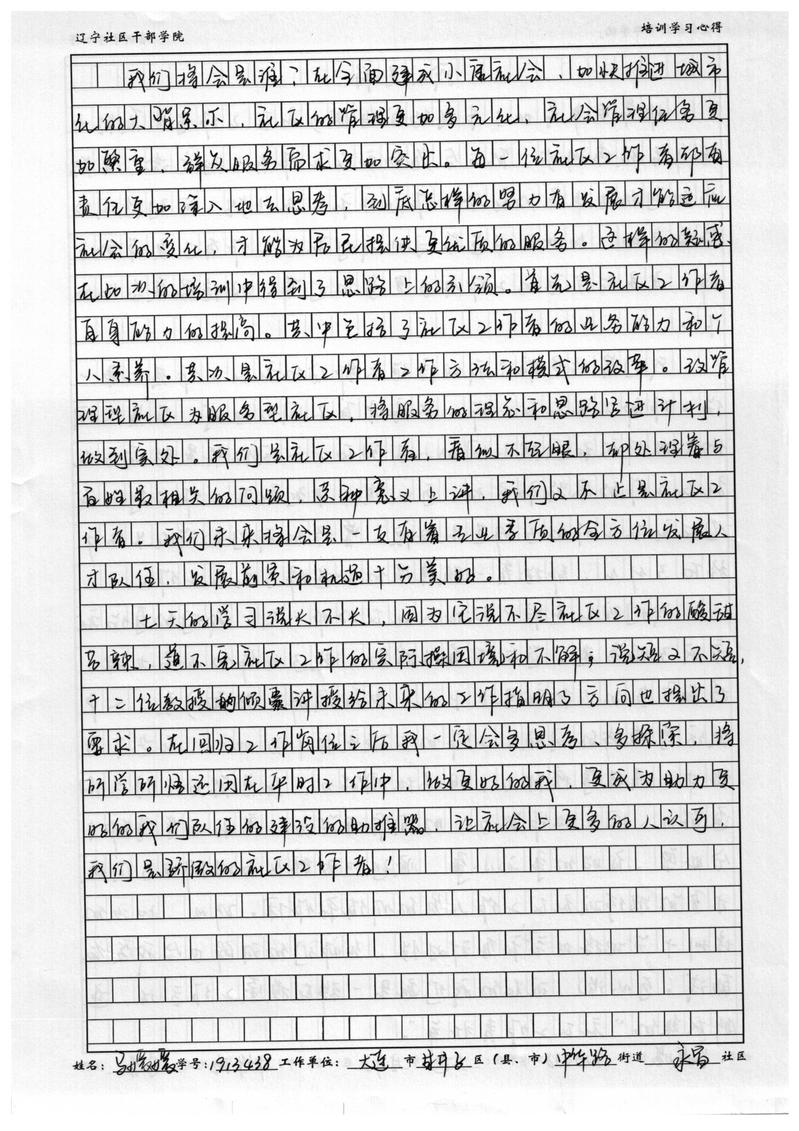 辽宁社区干部学院
培训学习心得
我们将会是谁？在全面建成小康社会、加快推进城市
化的大背景下，社区的管理更加多元化，社会管理任务更
加繁重，群众服务需求更加突出。每一位社区工作者都有
责任更加深入地去思考，到底怎样的努力有发展才能适应
社会的变化，才能为居民提供更优质的服务。这样的疑惑
在此次的培训中得到了思路上的引领。首先是社区工作者
自身能力的提高。其中包括了社区工作者的业务能力和个
人素养。其次是社区工作者工作方法和模式的改革。改管
理型社区为服务型社区，将服务的理念和思路写进计划，
做到实处。我们是社区工作者，看似不起眼，却处理着与
百姓最相关的问题，某种意义上讲，我们又不止是社区工
作者。我们未来将会是一支有着专业素质的全方位发展人
才队伍，发展前景和机遇十分美好。
十天的学习说长不长，因为它说不尽社区工作的酸甜
苦辣，道不完社区工作的实际操困境和不解；说短又不短，
十二位教授的倾囊讲授给未来的工作指明了方向也提出了
要求。在回归工作岗位之后我一定会多思考、多探索，将
所学所悟还因在平时工作中，做更好的我，更成为助力更
好的我们队伍的建设的助推器，让社会上更多的人认可，
我们是骄傲的社区工作者！
姓名： 学号：1913438 工作单位： 大连 市 甘井子 区（县、市） 中华路 街道 永昌 社区